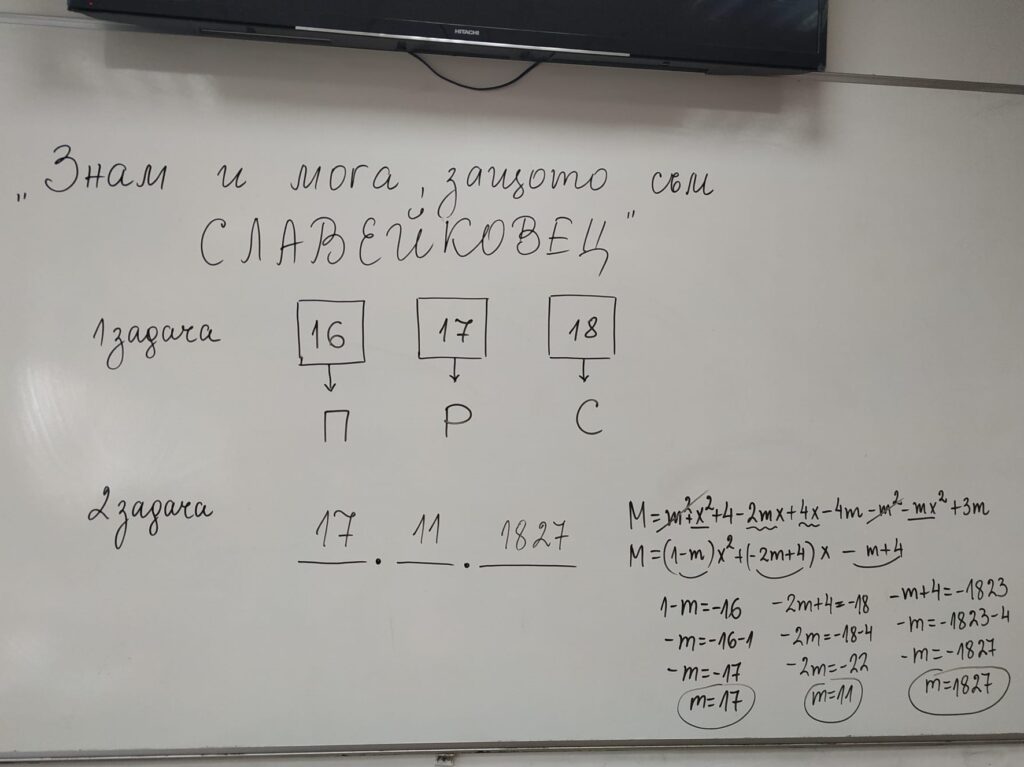 HITACHI
„Знам и мога, защото съм
СЛАВЕЙКОВЕЦ"
1 задача 16 17 18
П Р С
2 задача 17 . 11 . 1827
M=m²+x²+4-2mx+4x-4m-m²-mx²+3m
M=(1-m)x²+(-2m+4)x-m+4
1-m=-16 -2m+4=-18 -m+4=-1823
-m=-16-1 -2m=-18-4 -m=-1823-4
-m=-17 -2m=-22 -m=-1827
m=17 m=11 m=1827